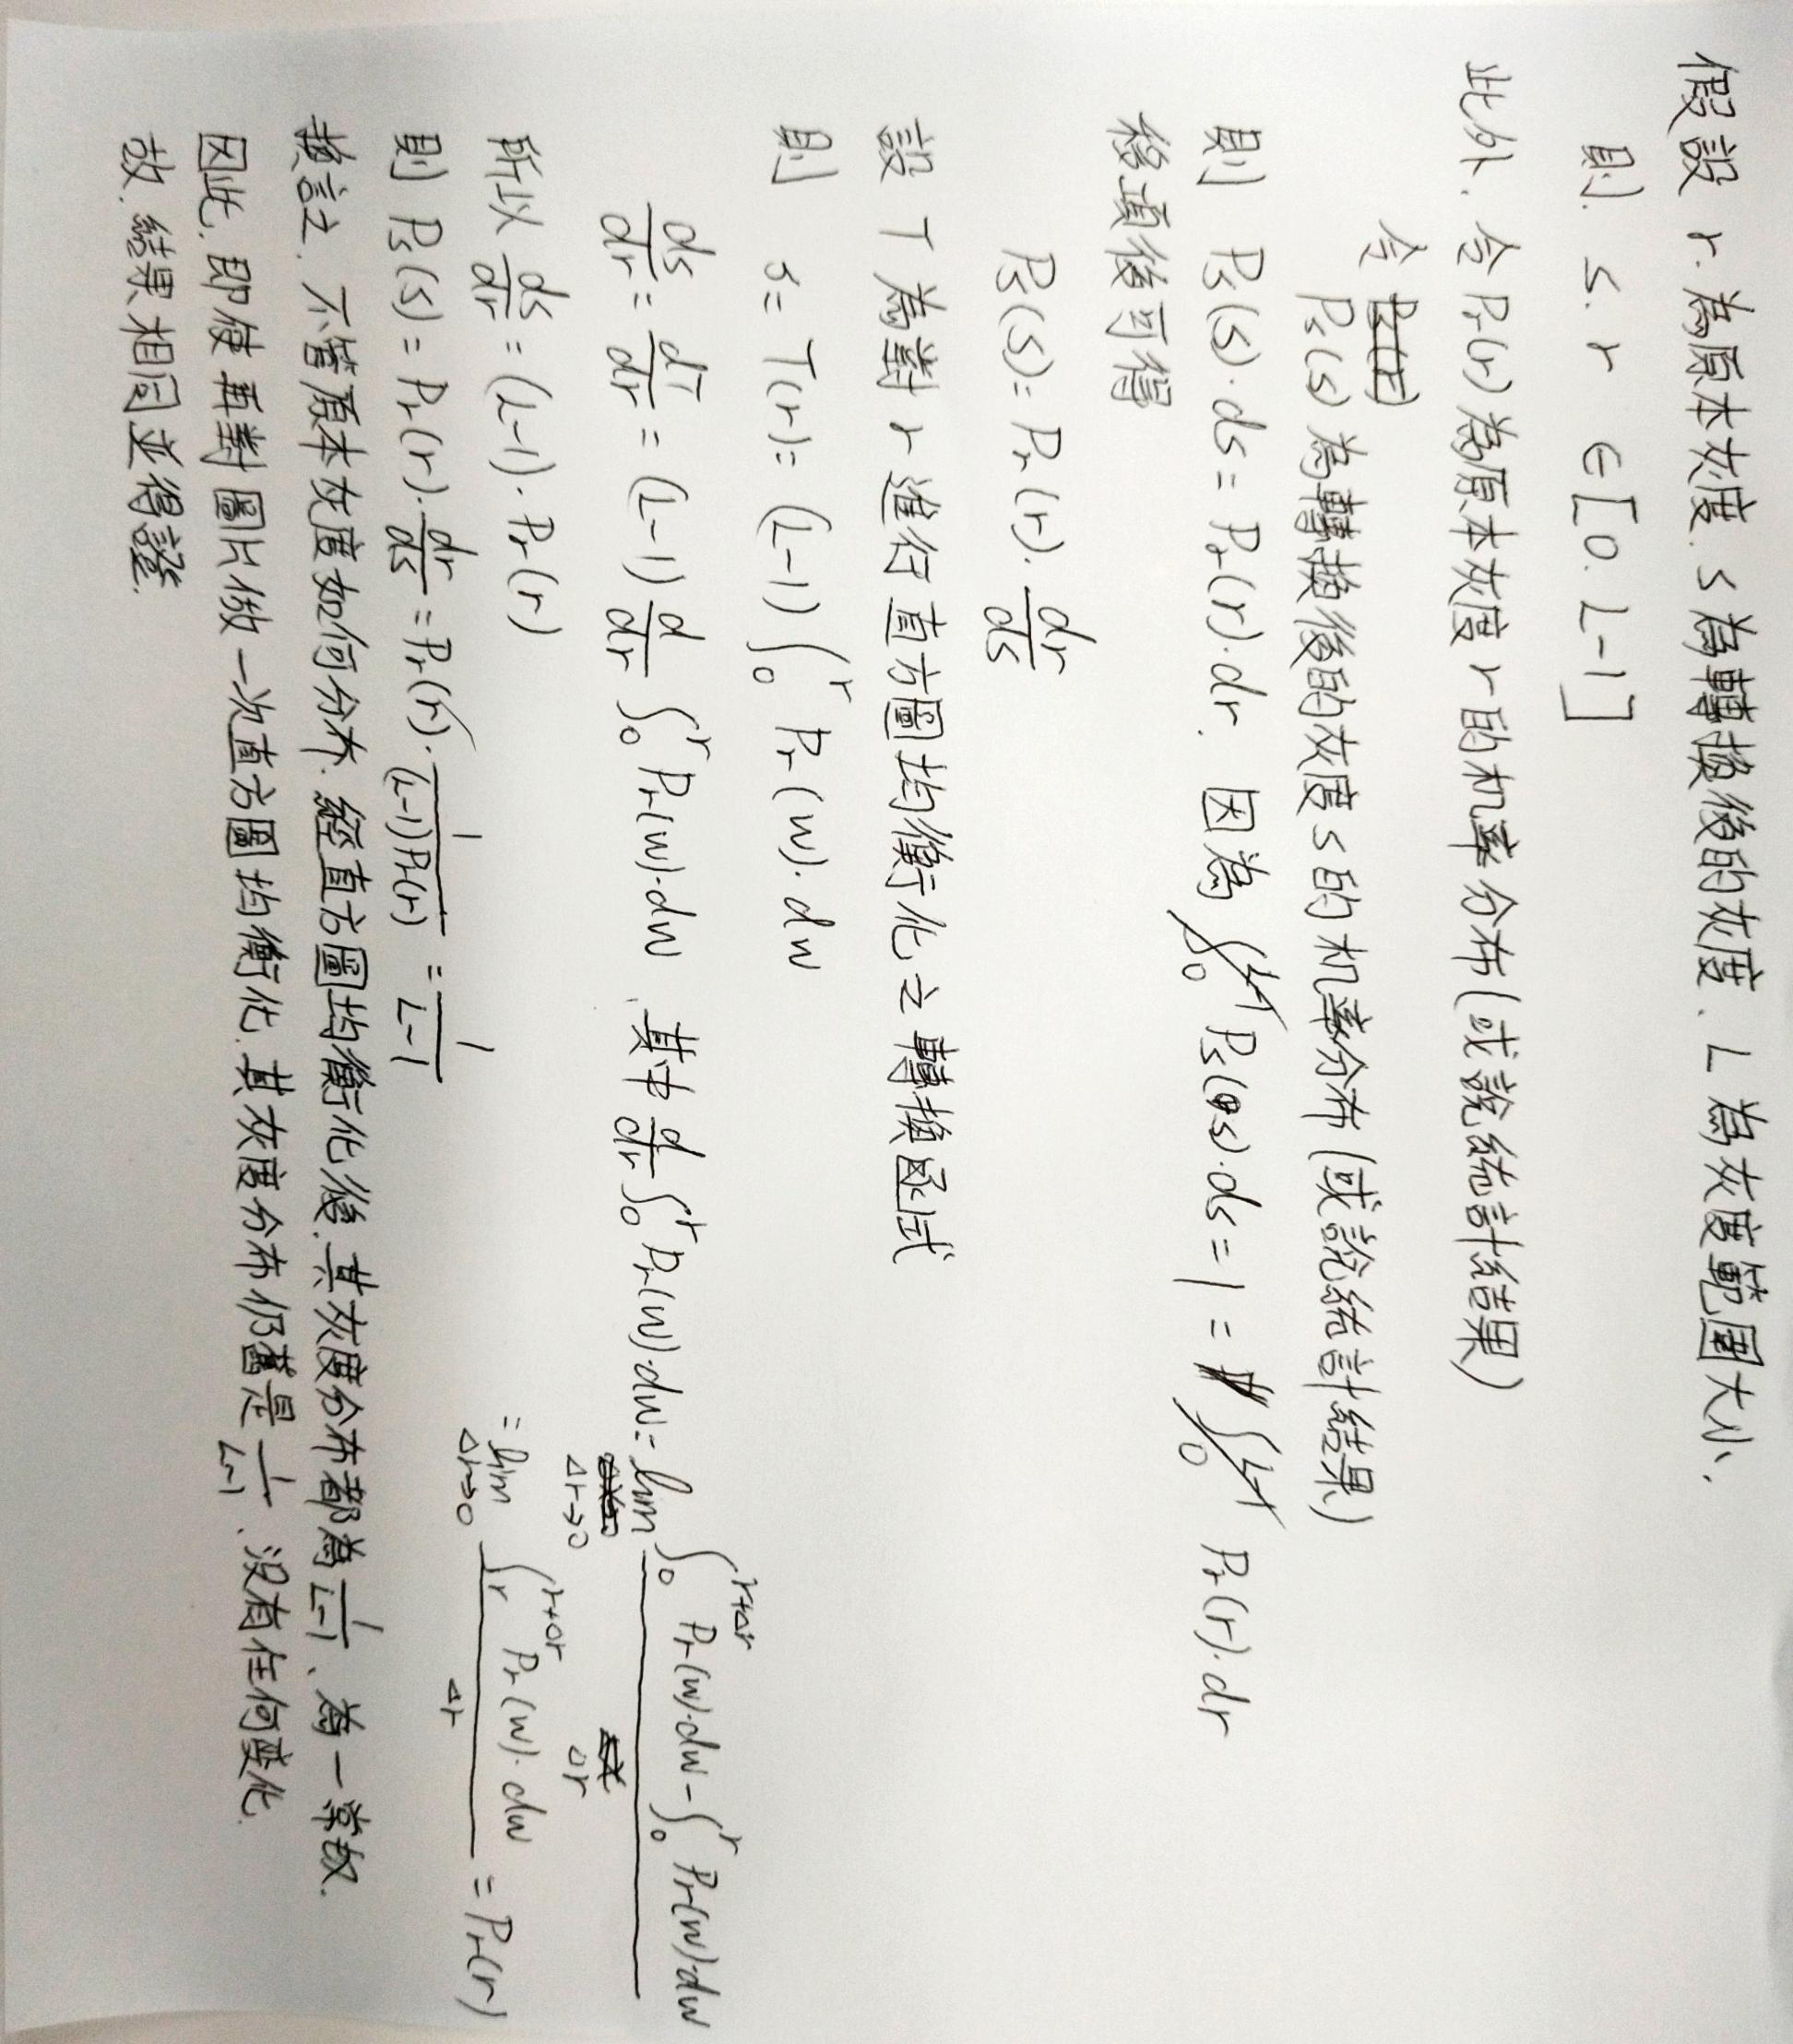 假設 r 為原本灰度, s 為轉換後的灰度、L 為灰度範圍大小,
則. s. r ∈[0. L-1]
此外, 令 Pr(r) 為原本灰度 r 的机率分布(或說統計結果)
令 Ps(s) 為轉換後的灰度 s 的机率分布(或說統計結果)
則 Ps(s)·ds = Pr(r)·dr. 因為 ∫₀ Ps(s)·ds = 1 = ∫₀ Pr(r)·dr
移項後可得
Ps(s) = Pr(r)· dr/ds
設 T 為對 r 進行直方圖均衡化之轉換函式
則 s = T(r) = (L-1) ∫₀^r Pr(w)·dw
ds/dr = dT/dr = (L-1) d/dr ∫₀^r Pr(w)·dw , 其中 d/dr ∫₀^r Pr(w)·dw = lim Δr→0 (∫₀^(r+Δr) Pr(w)·dw - ∫₀^r Pr(w)·dw)/Δr
= lim Δr→0 (∫r^(r+Δr) Pr(w)·dw)/Δr = Pr(r)
所以 ds/dr = (L-1)·Pr(r)
則 Ps(s) = Pr(r)· dr/ds = Pr(r)· 1/((L-1)Pr(r)) = 1/(L-1)
換言之, 不管原本灰度如何分布, 經直方圖均衡化後, 其灰度分布都為 1/(L-1)、為一常数.
因此, 即使再對圖片做一次直方圖均衡化, 其灰度分布仍舊是 1/(L-1)、没有任何變化
故, 結果相同並得證.